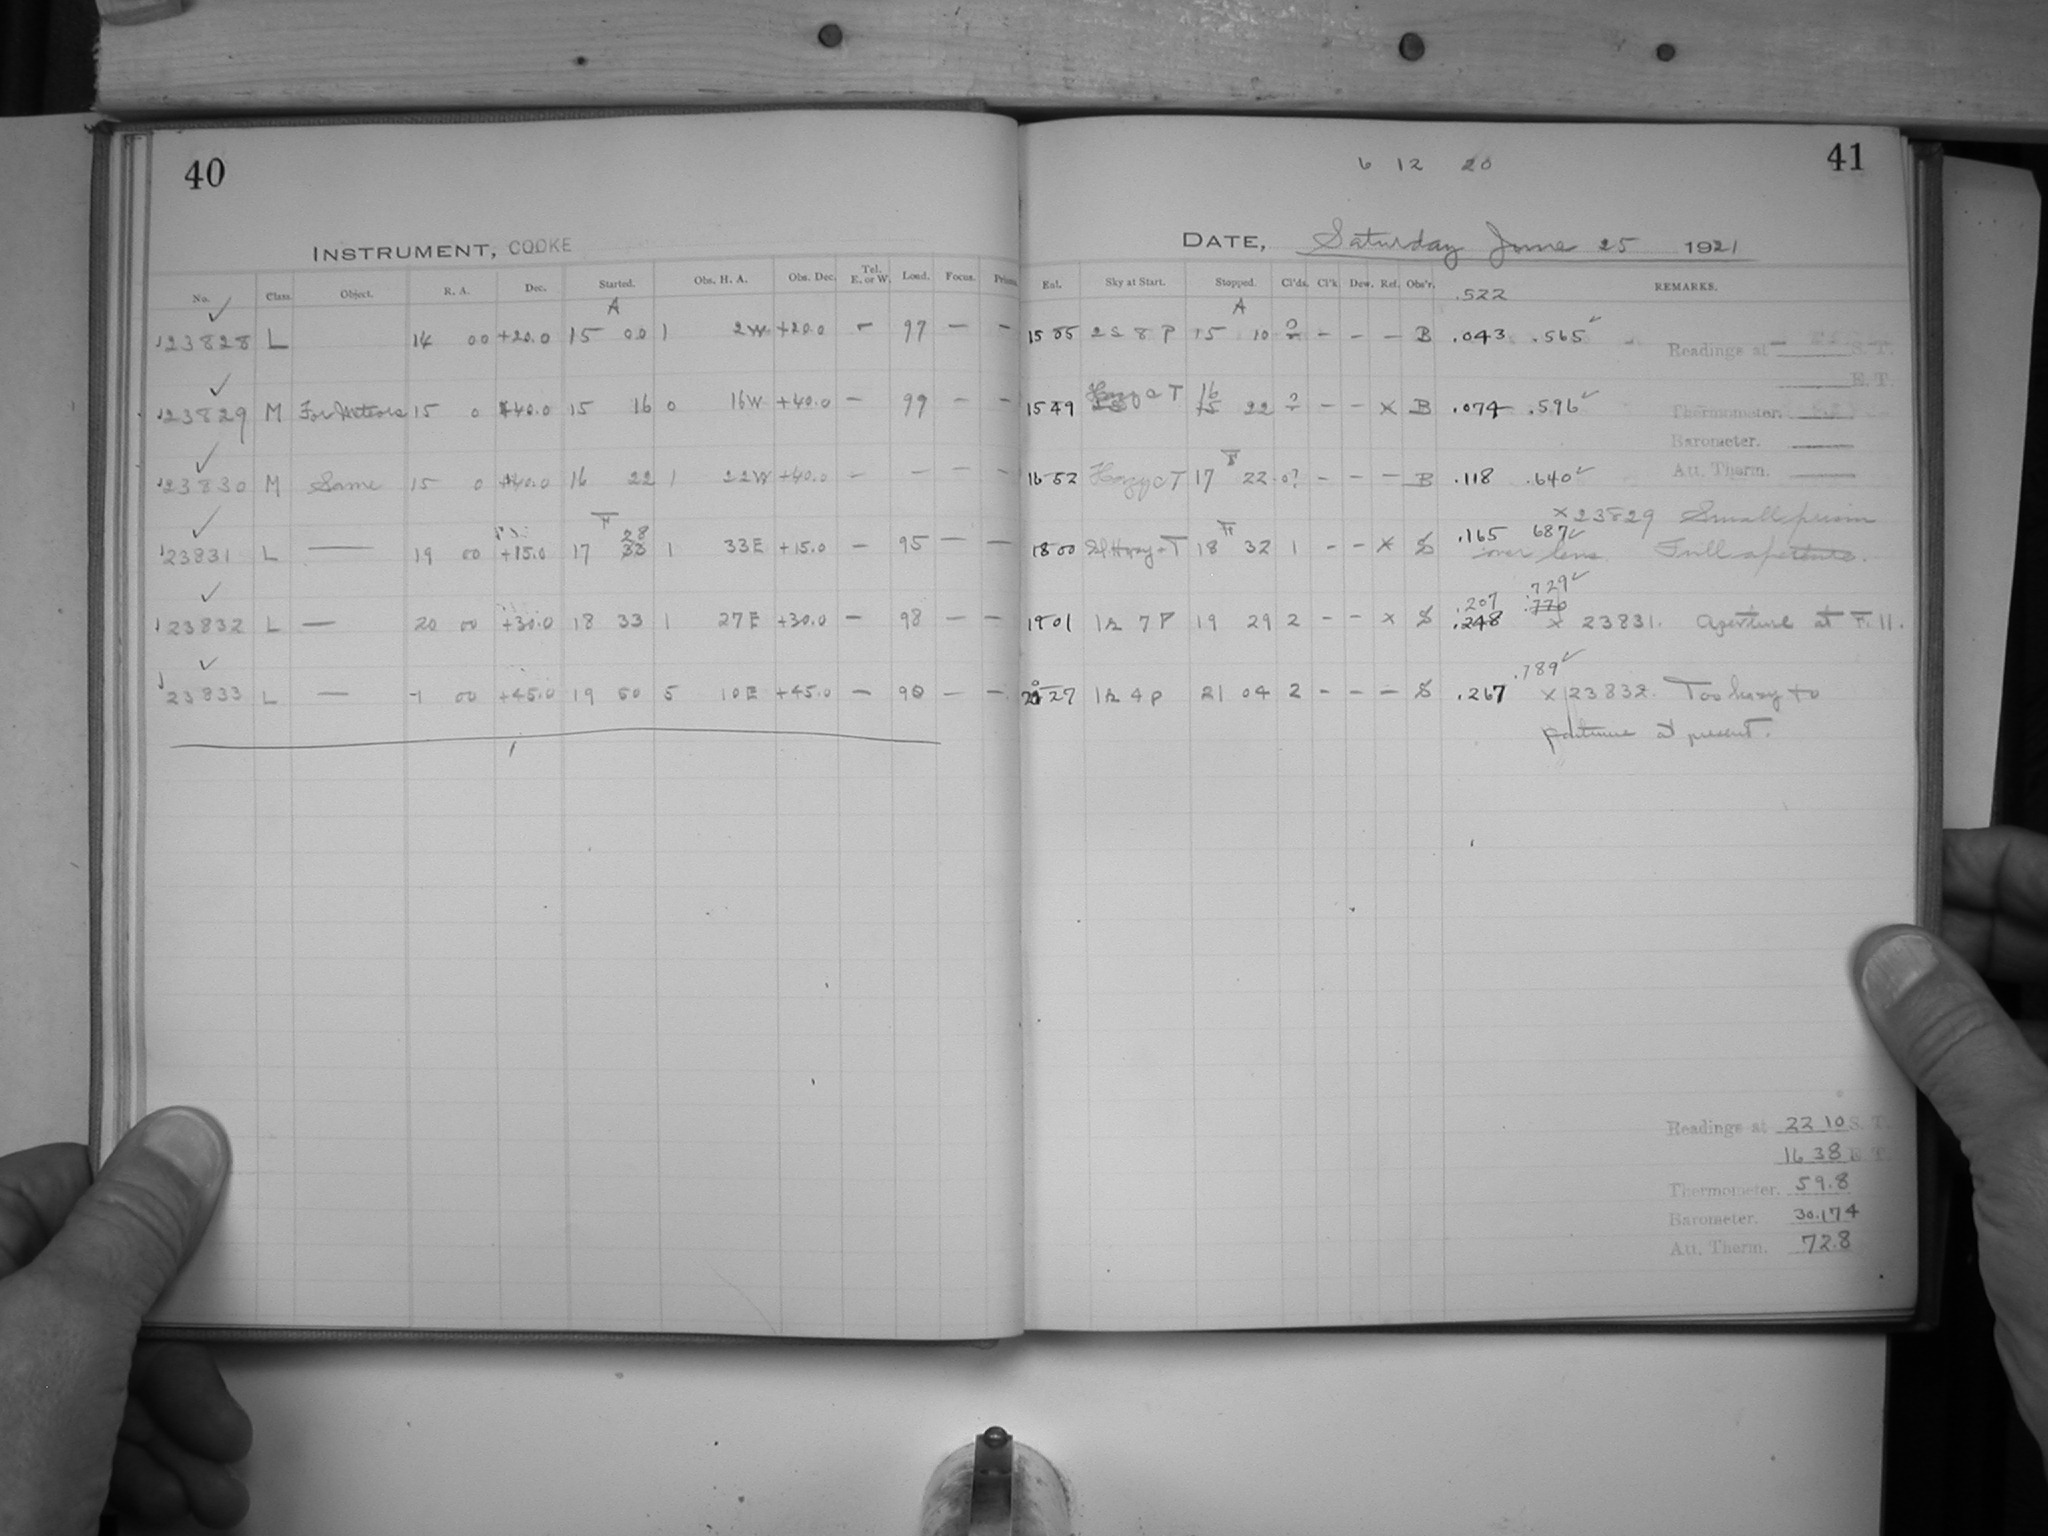 40
INSTRUMENT, COOKE
No. Class. Object. R. A. Dec. Started. Obs. H. A. Obs. Dec. Tel. E. or W. Load. Focus. Prisms.
A
123828 L 14 00 +20.0 15 00 1 2W +20.0 – 97 – –
123829 M For Meteors 15 0 +40.0 15 16 0 16W +40.0 – 99 – –
123830 M Same 15 0 +40.0 16 22 1 22W +40.0 – – – –
F 28
123831 L — 19 00 +15.0 17 33 1 33E +15.0 – 95 – –
123832 L — 20 00 +30.0 18 33 1 27E +30.0 – 98 – –
123833 L — 1 00 +45.0 19 50 5 10E +45.0 – 90 – –
41
6 12 20
DATE, Saturday June 25 1921
Exl. Sky at Start. Stopped. Cl'ds. Cl'k. Dew. Ref. Obs'r. REMARKS.
.522
A
15 05 2 S 8 P 15 10 ? – – – B .043 .565
Readings at S. T.
E. T.
15 49 Hazy c T 16 22 ? – – X B .074 .596
Thermometer.
Barometer.
Att. Therm.
F
16 52 Hazy c T 17 22 0? – – – B .118 .640
x 23829 Small prism
F
18 00 Sl Hazy c T 18 32 1 – – X S .165 687
over lens Full aperture.
.729
.207 .770
19 01 1h 7 P 19 29 2 – – X S .248 x 23831. Aperture at F. 11.
.789
20 27 1h 4 P 21 04 2 – – – S .267 x 123832. Too hazy to
continue at present.
Readings at 22 10 S. T.
16 38 E. T.
Thermometer. 59.8
Barometer. 30.174
Att. Therm. 72.8